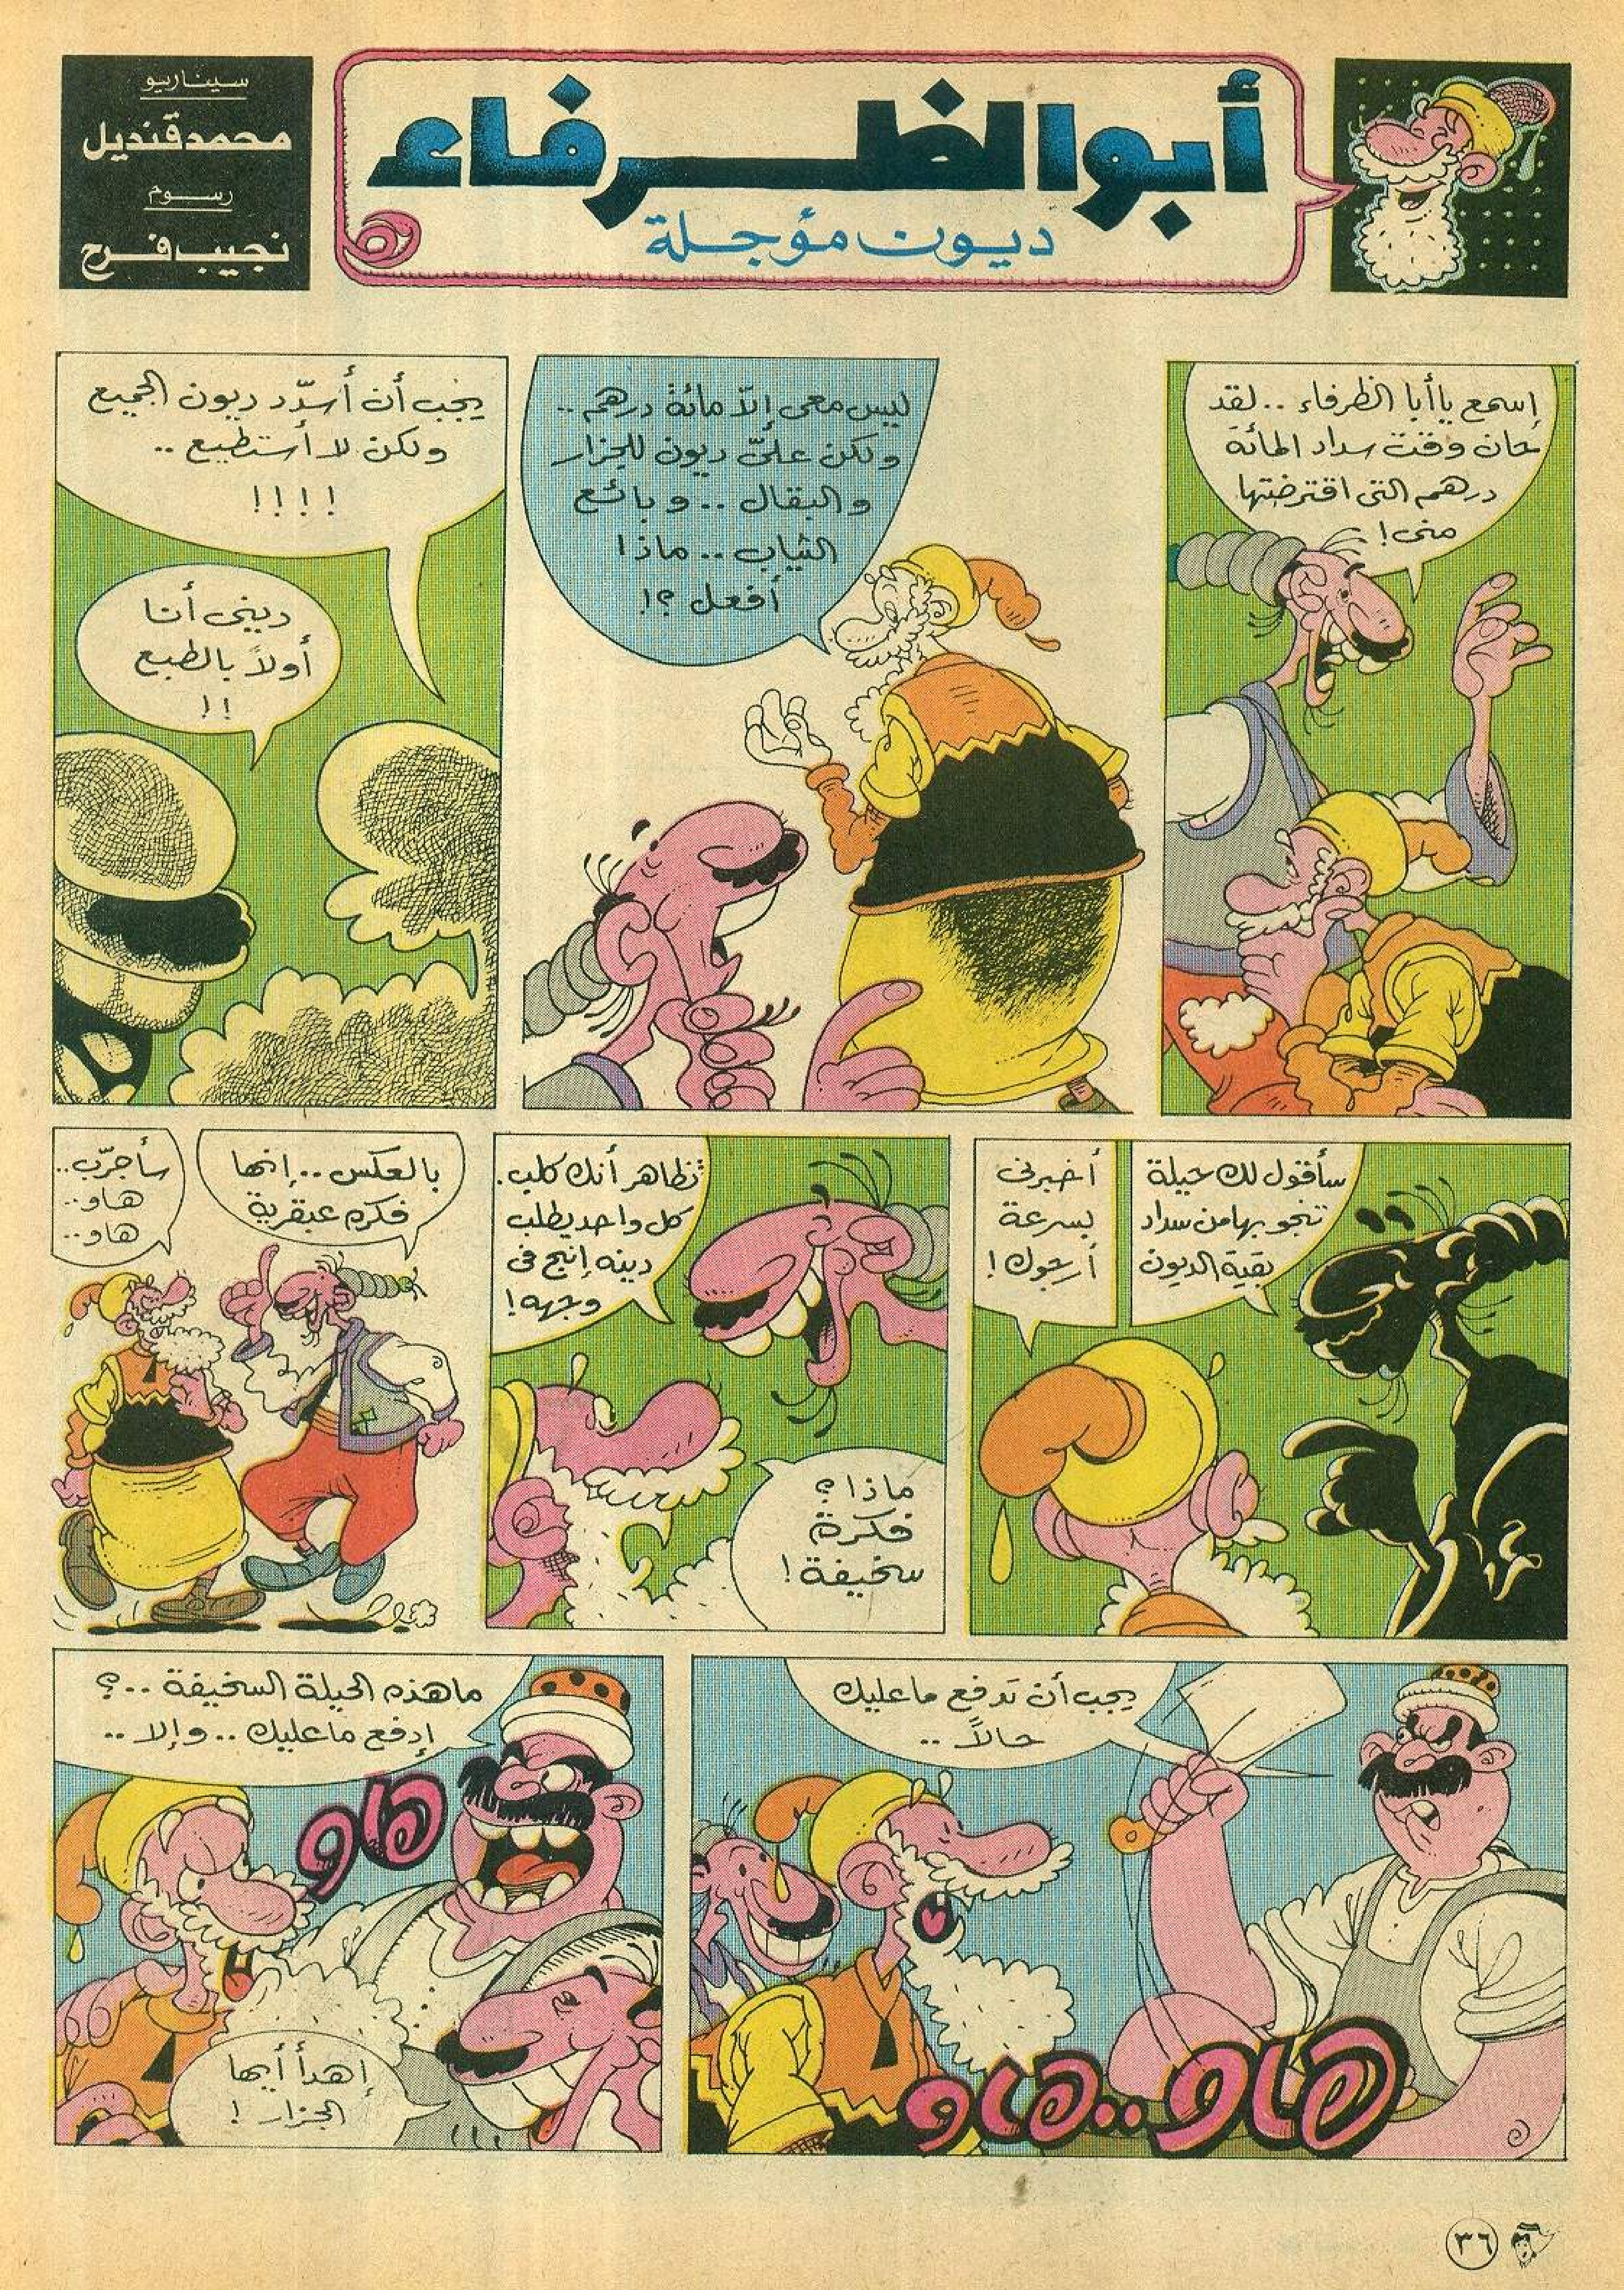 أبو الظرفاء
ديون مؤجلة
سيناريو
محمد قنديل
رسوم
نجيب فرح
إسمع يا أبا الظرفاء .. لقد
حان وقت سداد المائة
درهم التى اقترضتها
منى !
ليس معى إلاّ مائة درهم ..
ولكن علىّ ديون للجزار
والبقال .. وبائع
الثياب .. ماذا
أفعل ؟!
يجب أن أسدّد ديون الجميع
ولكن لا أستطيع ..
!!!!
دينى أنا
أولاً بالطبع
!!
سأقول لك حيلة
تنجو بها من سداد
بقية الديون
أخبرنى
بسرعة
أرجوك !
تظاهر أنك كلب .
كل واحد يطلب
دينه إنبح فى
وجهه !
ماذا ؟
فكرة
سخيفة !
بالعكس .. إنها
فكره عبقرية
سأجرّب ..
هاو ..
هاو ..
يجب أن تدفع ما عليك
حالاً ..
هاو .. هاو
ما هذه الحيلة السخيفة .. ؟
إدفع ما عليك .. وإلا ..
هاو
إهدأ أيها
الجزار !
٣٦